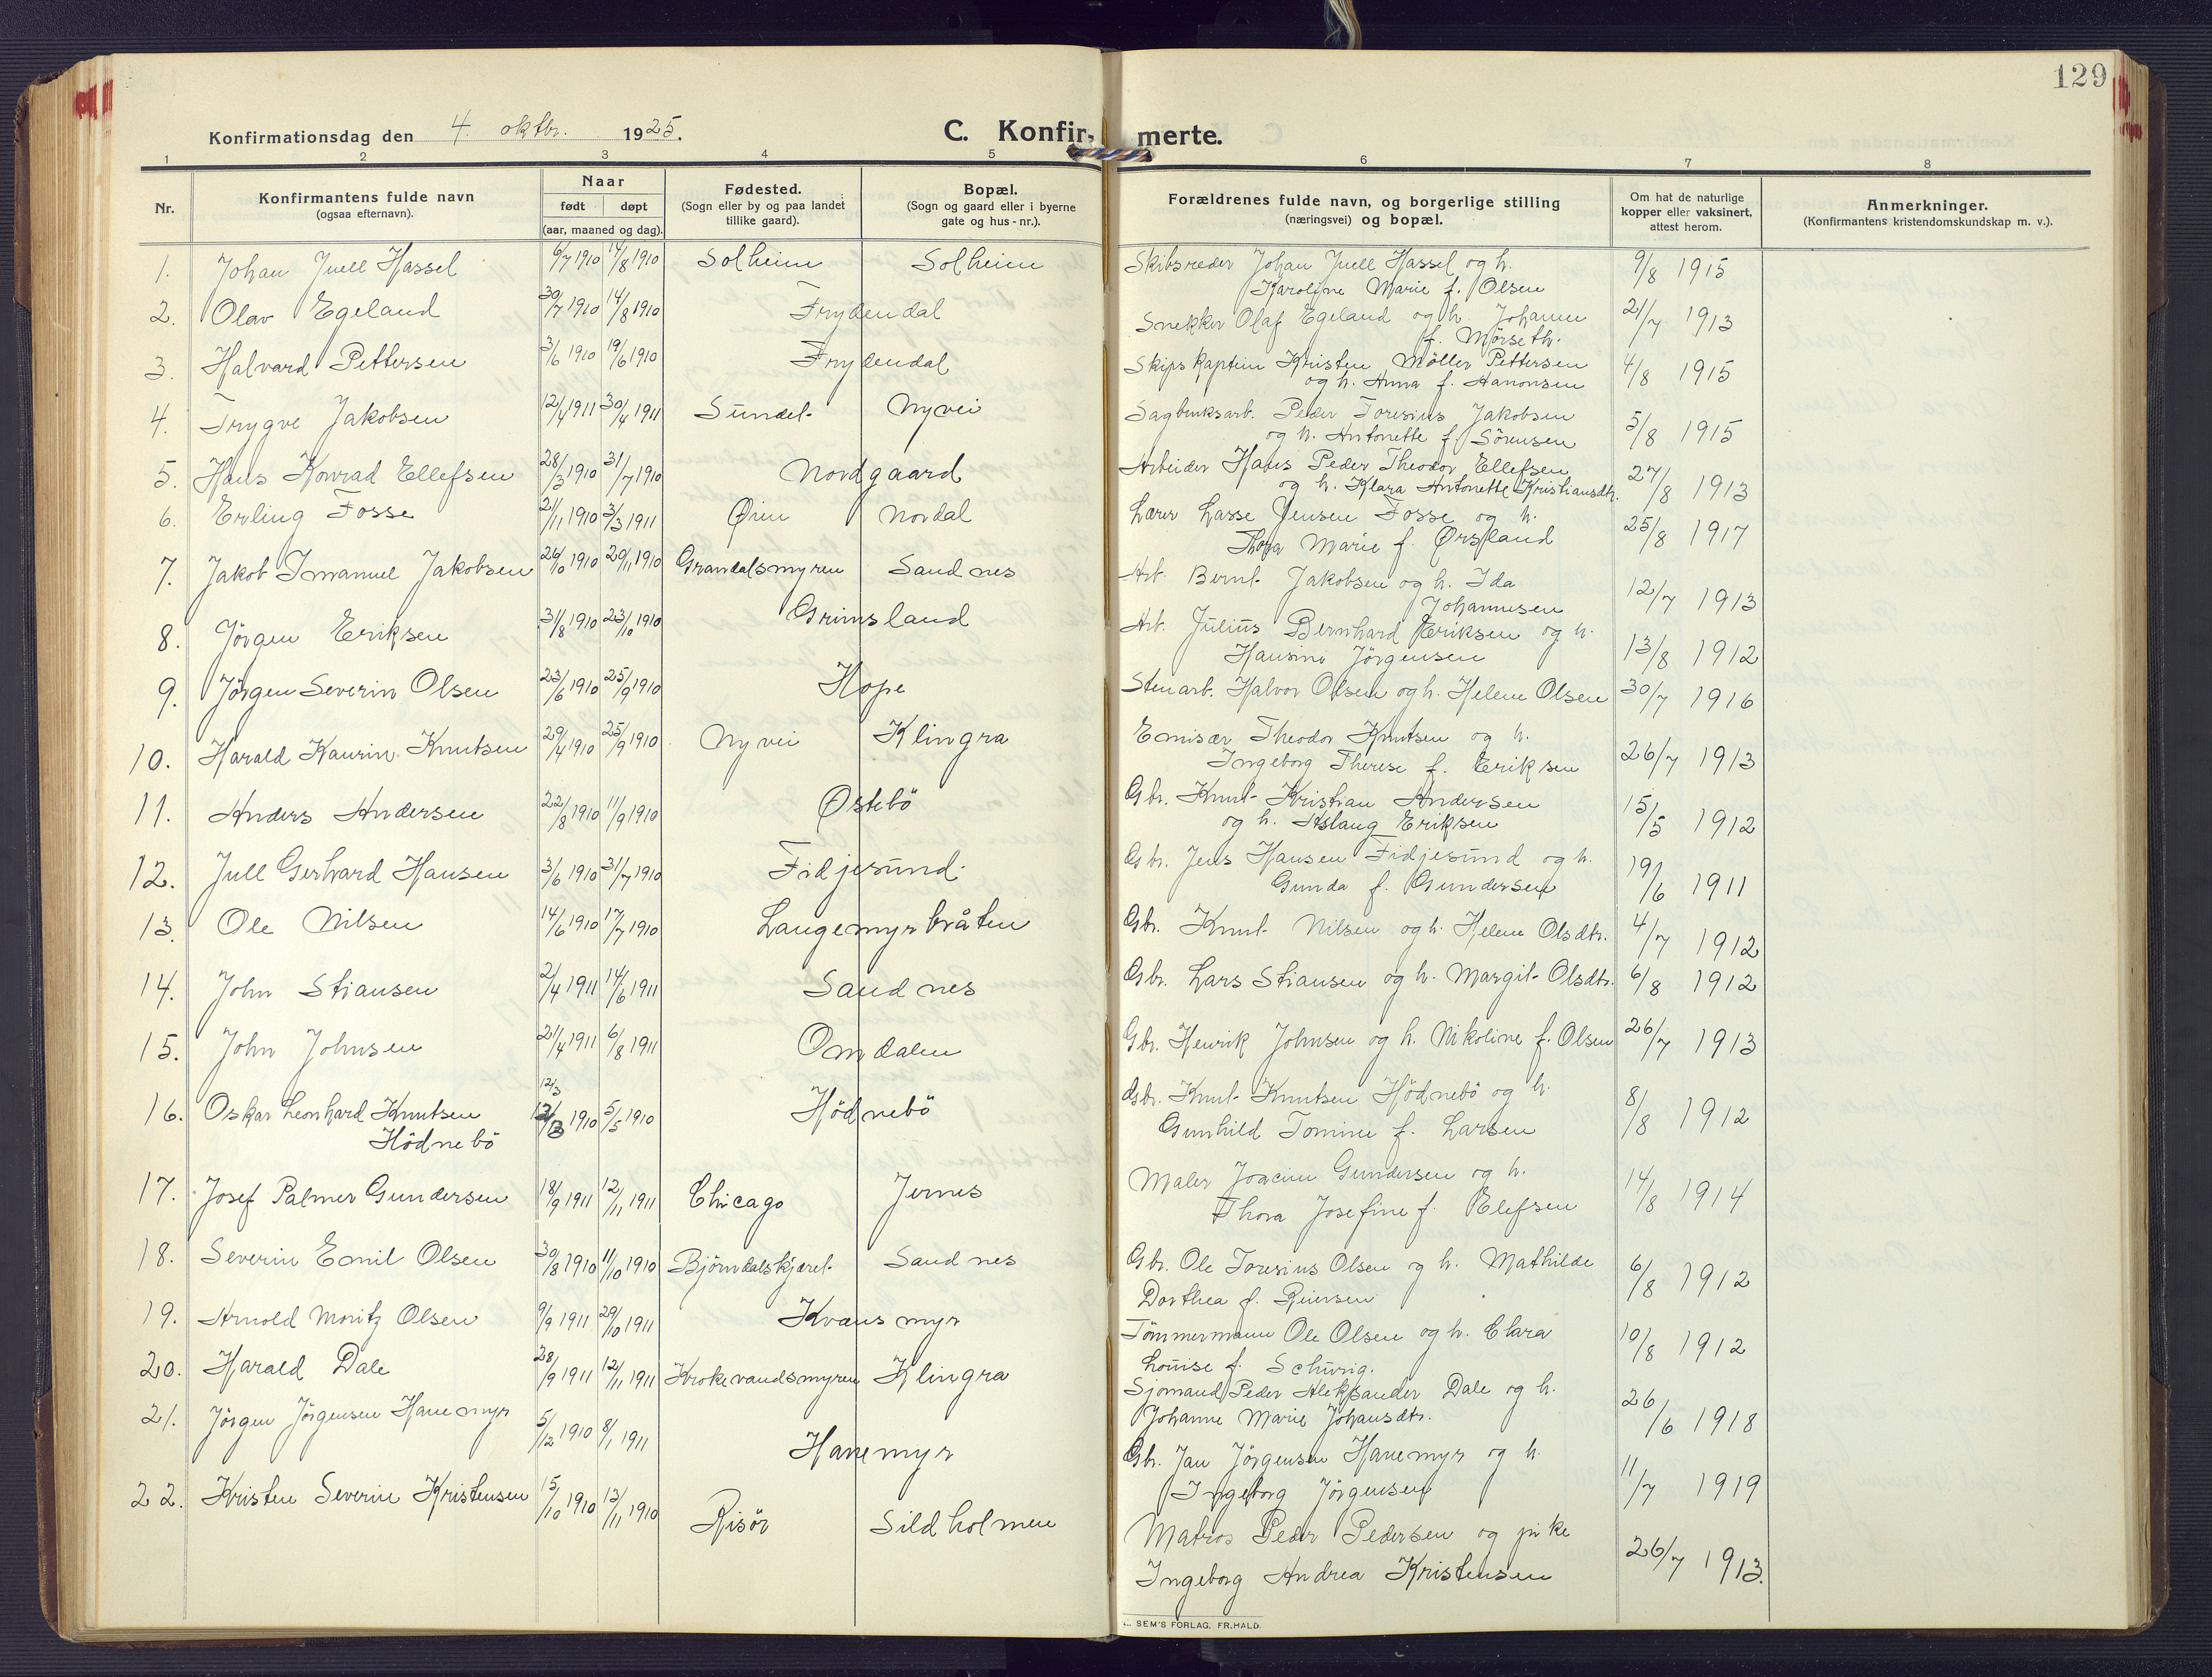 129
Konfirmationsdag den 4. oktbr. 1925.
C. Konfir- merte.
1 2 3 4 5 6 7 8
Nr.
Konfirmantens fulde navn
(ogsaa efternavn).
Naar
født døpt
(aar, maaned og dag).
Fødested.
(Sogn eller by og paa landet
tillike gaard).
Bopæl.
(Sogn og gaard eller i byerne
gate og hus-nr.).
Forældrenes fulde navn, og borgerlige stilling
(næringsvei) og bopæl.
Om hat de naturlige
kopper eller vaksinert,
attest herom.
Anmerkninger.
(Konfirmantens kristendomskundskap m. v.).
1. Johan Juell Hassel 6/7 1910 14/8 1910 Solheim Solheim Skibsreder Johan Juell Hassel og h. 9/8 1915
Karoline Marie f. Olsen
2. Olav Egeland 30/7 1910 14/8 1910 Frydendal Snekker Olaf Egeland og h. Johanne 21/7 1913
f. Mörseth.
3. Halvard Pettersen 3/6 1910 19/6 1910 Frydendal Skipskaptein Kristen Möller Pettersen 4/8 1915
og h. Anna f. Hanonsen
4. Trygve Jakobsen 12/4 1911 30/4 1911 Sundet Nyvei Sagbruksarb. Peder Toresius Jakobsen 5/8 1915
og h. Antonette f. Sörensen
5. Hans Konrad Ellefsen 28/3 1910 31/7 1910 Nordgaard Arbeider Hans Peder Theodor Ellefsen 27/8 1913
og h. Klara Antonette Kristiansdtr.
6. Erling Fosse 21/11 1910 3/3 1911 Øien Nordal Lærer Lasse Jensen Fosse og h. 25/8 1917
Thora Marie f. Ørsland
7. Jakob Imanuel Jakobsen 26/10 1910 20/11 1910 Grandalsmyren Sandnes Arb. Bernt Jakobsen og h. Ida 12/7 1913
Johannesen
8. Jörgen Eriksen 31/8 1910 23/10 1910 Grimsland Arb. Julius Bernhard Eriksen og h. 13/8 1912
Hansine Jörgensen
9. Jörgen Severin Olsen 23/6 1910 25/9 1910 Hope Stenarb. Halvor Olsen og h. Helene Olsen 30/7 1916
10. Harald Kaurin Knutsen 29/4 1910 25/9 1910 Nyvei Klingra Emisær Theodor Knutsen og h. 26/7 1913
Ingeborg Therese f. Eriksen
11. Anders Andersen 22/8 1910 11/9 1910 Østebö Gbr. Knut Kristian Andersen 15/5 1912
og h. Aslaug Eriksen
12. Jull Gerhard Hansen 3/6 1910 31/7 1910 Fidjesund Gbr. Jens Hansen Fidjesund og h. 19/6 1911
Gunda f. Gundersen
13. Ole Nilsen 14/6 1910 17/7 1910 Langemyrbråten Gbr. Knut Nilsen og h. Helene Olsdtr. 4/7 1912
14. John Stiansen 2/4 1911 14/6 1911 Sandnes Gbr. Lars Stiansen og h. Margit Olsdtr. 6/8 1912
15. John Johnsen 21/4 1911 6/8 1911 Omdalen Gbr. Henrik Johnsen og h. Nikoline f. Olsen 26/7 1913
12/3
16. Oskar Leonhard Knutsen 1910 5/5 1910 Hödnebö Gbr. Knut Knutsen Hödnebö og h. 8/8 1912
Hödnebö Gunhild Tomine f. Larsen
17. Josef Palmer Gundersen 18/9 1911 12/11 1911 Chicago Jernes Maler Joacim Gundersen og h. 14/8 1914
Thora Josefine f. Elefsen
18. Severin Emil Olsen 30/8 1910 11/10 1910 Björndalskjæret Sandnes Gbr. Ole Toresius Olsen og h. Mathilde 6/8 1912
Dorthea f. Reiersen
19. Arnold Moritz Olsen 9/9 1911 29/10 1911 Kvænsmyr Tömmermann Ole Olsen og h. Clara 10/8 1912
Louise f. Schurig.
20. Harald Dale 28/9 1911 12/11 1911 Krokevandsmyren Klingra Sjömand Peder Aleksander Dale og h. 26/6 1918
Johanne Marie Johansdtr.
21. Jörgen Jörgensen Hanemyr 5/12 1910 8/1 1911 Hanemyr Gbr. Jan Jörgensen Hanemyr og h. 11/7 1919
Ingeborg Jörgensen
22. Kristen Severin Kristensen 15/10 1910 13/11 1910 Risör Sildholmen Matros Peder Pedersen og pike 26/7 1913.
Ingeborg Andrea Kristensen
SEM'S FORLAG. FR. HALD.